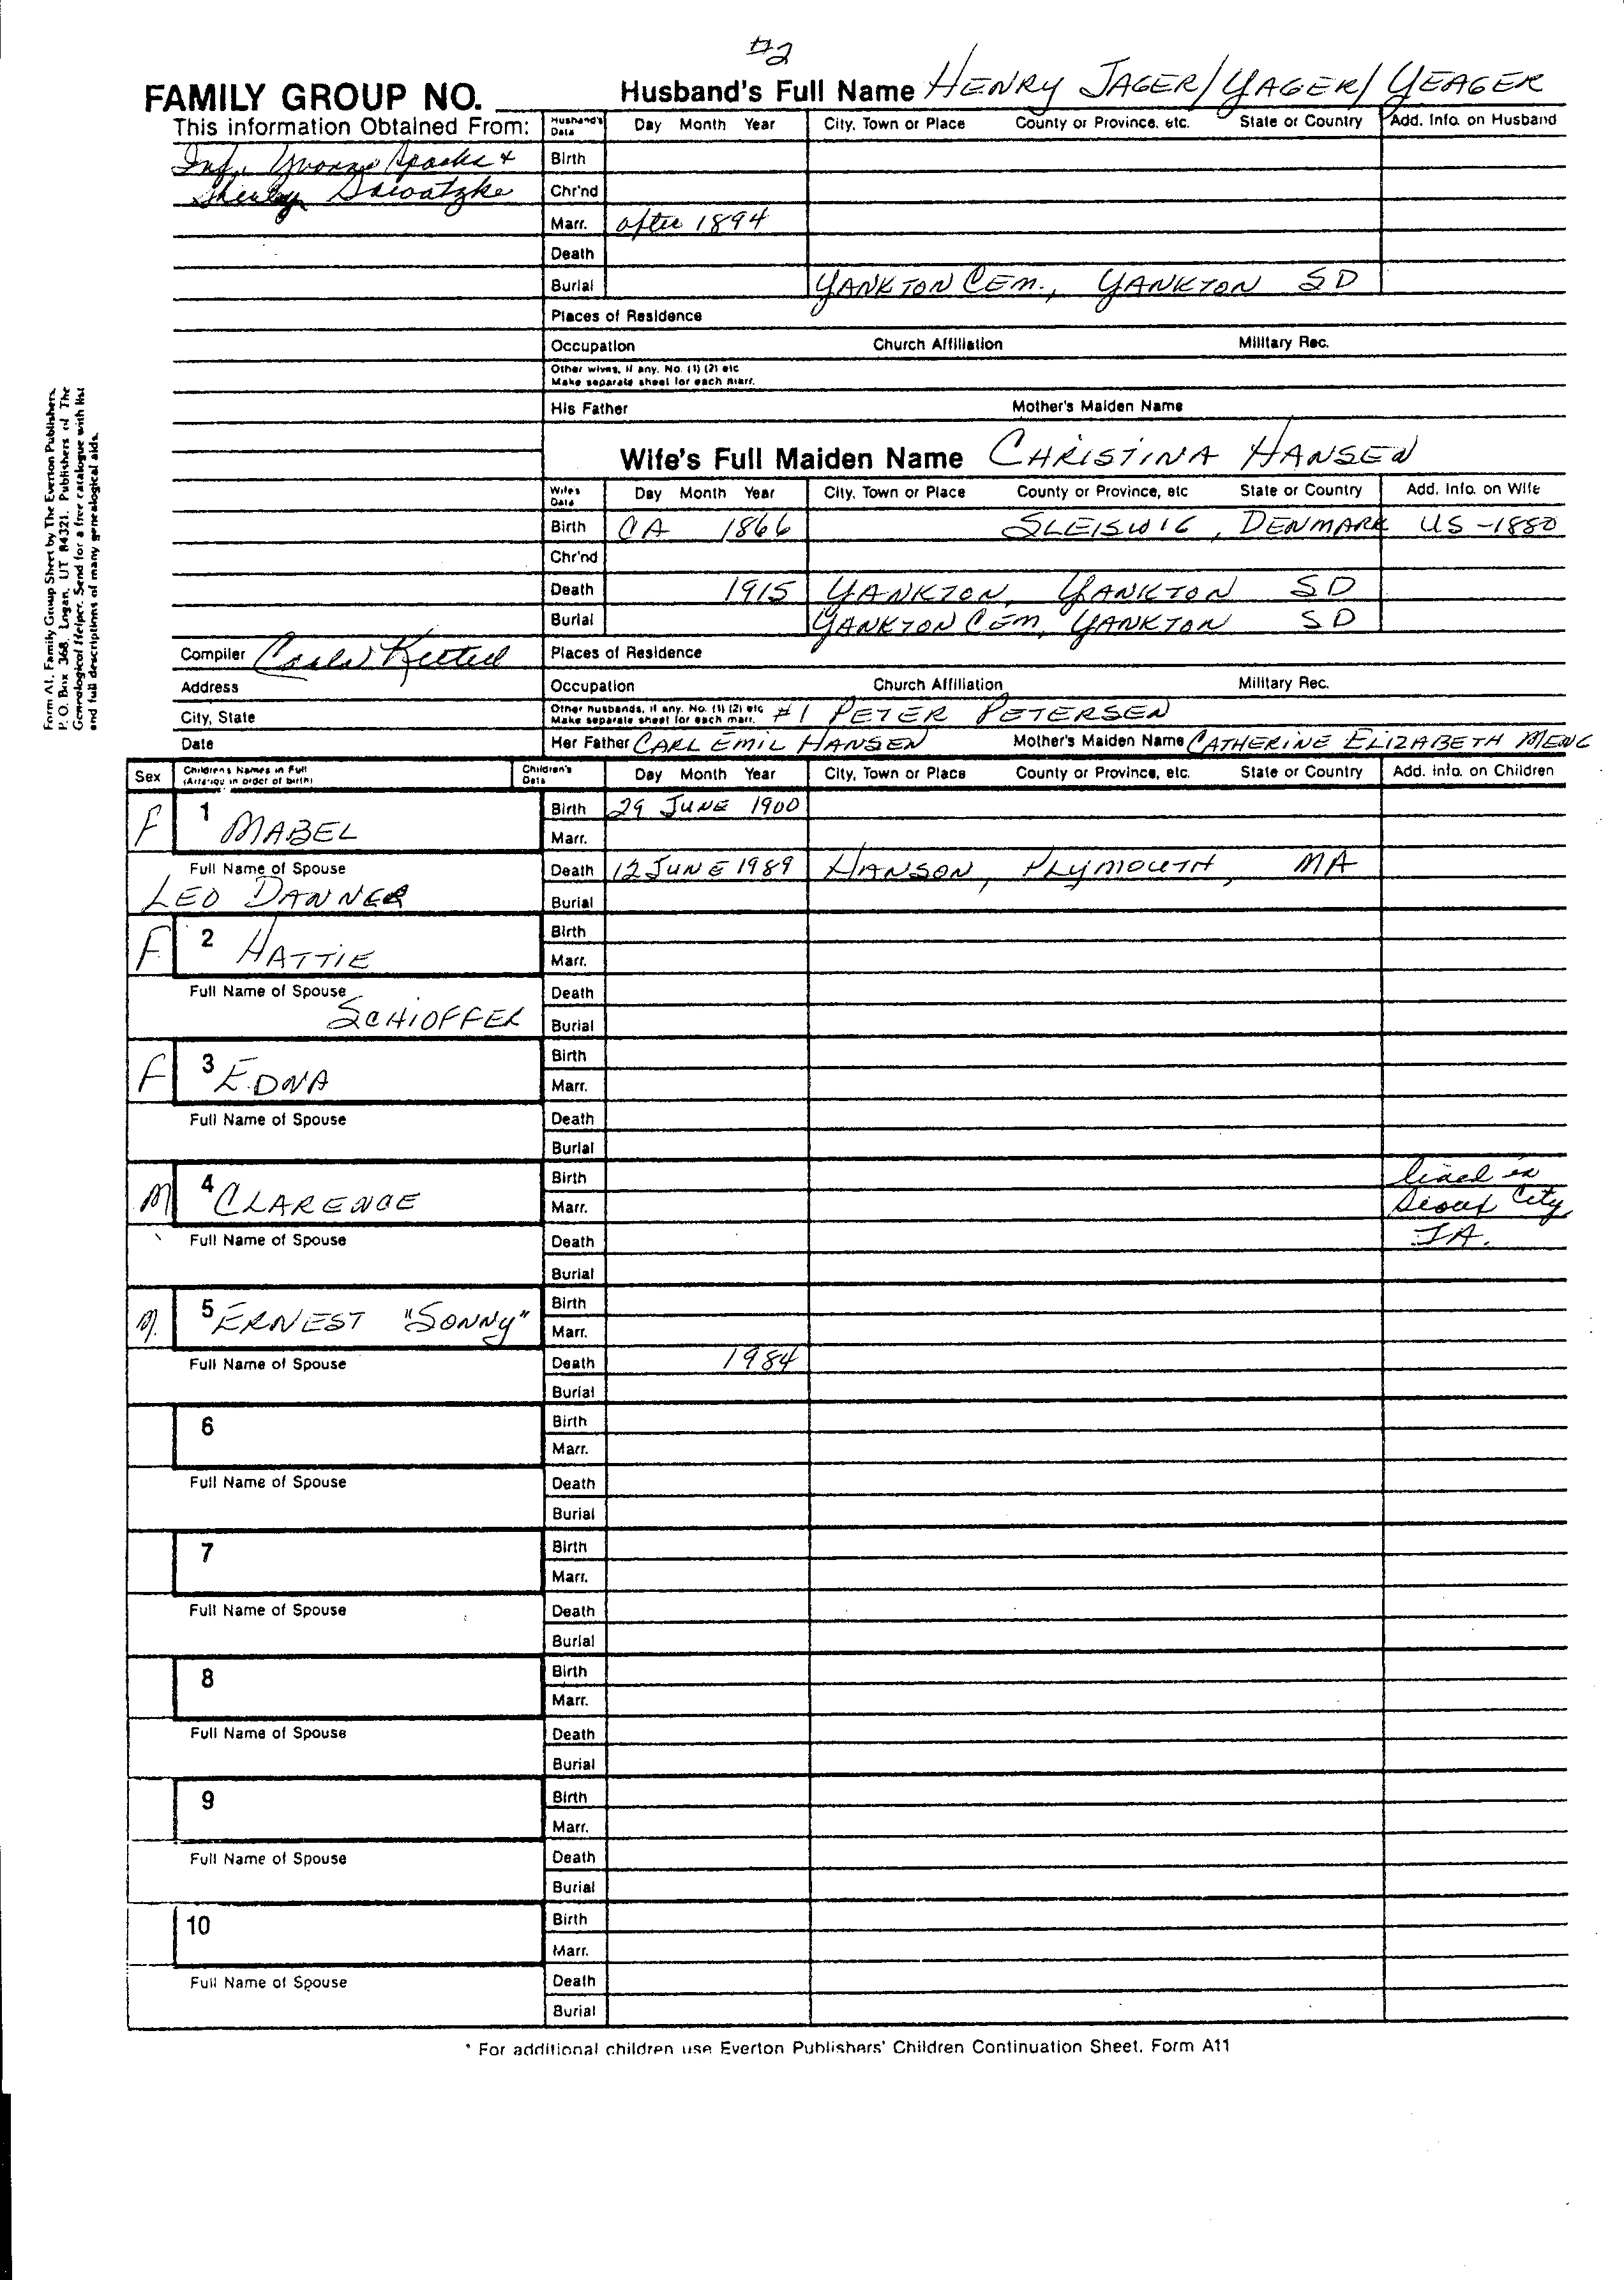 #2
FAMILY GROUP NO. Husband's Full Name HENRY JAGER/YAGER/YEAGER
This information Obtained From: Husband's Data Day Month Year City, Town or Place County or Province, etc. State or Country Add. Info. on Husband
Inf. Yvonne Sparks + Birth
Shirley Sawatzke Chr'nd
Marr. after 1894
Death
Burial YANKTON CEM., YANKTON SD
Places of Residence
Occupation Church Affiliation Military Rec.
Other wives, if any. No. (1) (2) etc
Make separate sheet for each marr.
His Father Mother's Maiden Name
Wife's Full Maiden Name CHRISTINA HANSEN
Wife's Data Day Month Year City, Town or Place County or Province, etc State or Country Add. Info. on Wife
Birth CA 1866 SLEISWIG, DENMARK US-1880
Chr'nd
Death 1915 YANKTON, YANKTON SD
Burial YANKTON CEM, YANKTON SD
Compiler Places of Residence
Address Occupation Church Affiliation Military Rec.
City, State Other husbands, if any. No. (1) (2) etc Make separate sheet for each marr. #1 PETER PETERSEN
Date Her Father CARL EMIL HANSEN Mother's Maiden Name CATHERINE ELIZABETH MENG
Sex Children's Names in Full (Arrange in order of birth) Children's Data Day Month Year City, Town or Place County or Province, etc. State or Country Add. Info. on Children
F 1 MABEL Birth 29 JUNE 1900
Marr.
Full Name of Spouse Death 12 JUNE 1989 HANSON, PLYMOUTH, MA
LEO DANNER Burial
F 2 HATTIE Birth
Marr.
Full Name of Spouse Death
SCHIOFFER Burial
F 3 EDNA Birth
Marr.
Full Name of Spouse Death
Burial
M 4 CLARENCE Birth lived in
Marr. Sioux City
Full Name of Spouse Death IA.
Burial
M. 5 ERNEST "SONNY" Birth
Marr.
Full Name of Spouse Death 1984
Burial
6 Birth
Marr.
Full Name of Spouse Death
Burial
7 Birth
Marr.
Full Name of Spouse Death
Burial
8 Birth
Marr.
Full Name of Spouse Death
Burial
9 Birth
Marr.
Full Name of Spouse Death
Burial
10 Birth
Marr.
Full Name of Spouse Death
Burial
* For additional children use Everton Publishers' Children Continuation Sheet. Form A11
Form A1. Family Group Sheet by The Everton Publishers,
P. O. Box 368, Logan, UT 84321. Publishers of The
Genealogical Helper. Send for a free catalogue with list
and full descriptions of many genealogical aids.